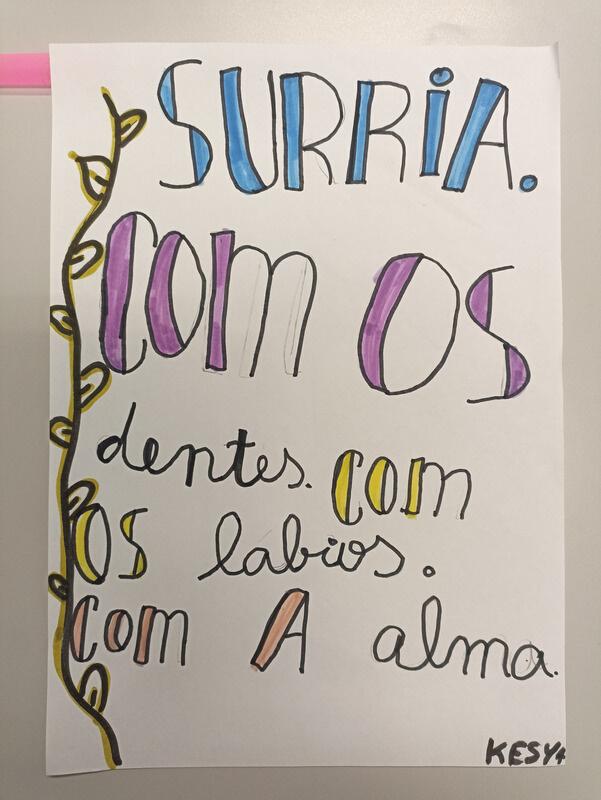 SURRiA.
COM OS
dentes. com
OS labios.
com A alma.
KESY